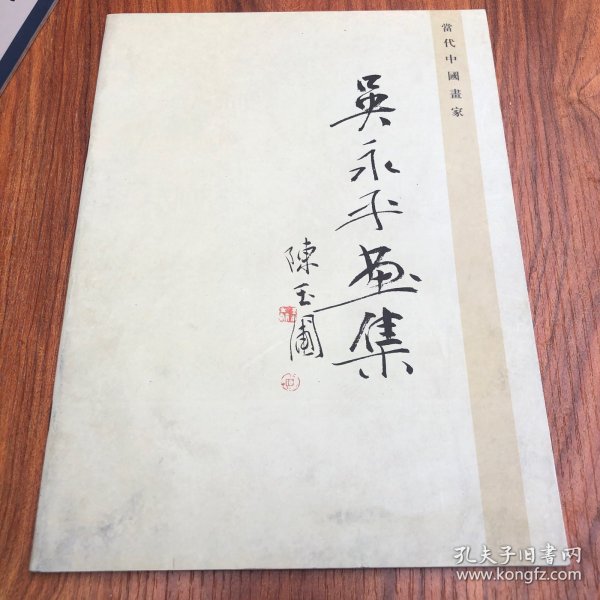 當代中國畫家
吳永平畫集
陳玉圃
孔夫子旧书网
www.kongfz.com